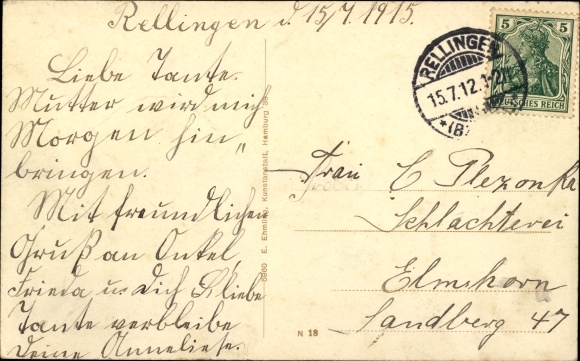 Rellingen d. 15/7. 1915.
Liebe Tante.
Mutter wird mich
Morgen hin„
bringen.
Mit freundlichen
Gruß an Onkel,
Frieda u. Dich liebe
Tante verbleibe
Deine Anneliese.
5 5
DEUTSCHES REICH
RELLINGEN
15.7.12.1-2N
*(B
Frau C. Plezonka
Schlachterei
Elmshorn
Sandberg 47
E. Ehmling, Kunstanstalt, Hamburg
N 18